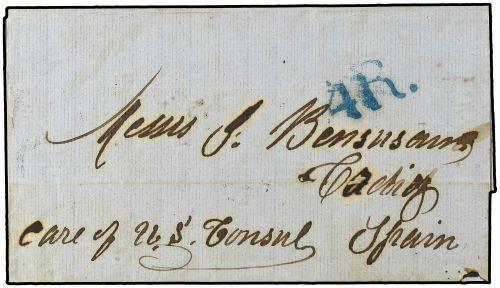 4R.
Messrs J. Bensusan
Cadiz
care of U.S. Consul Spain